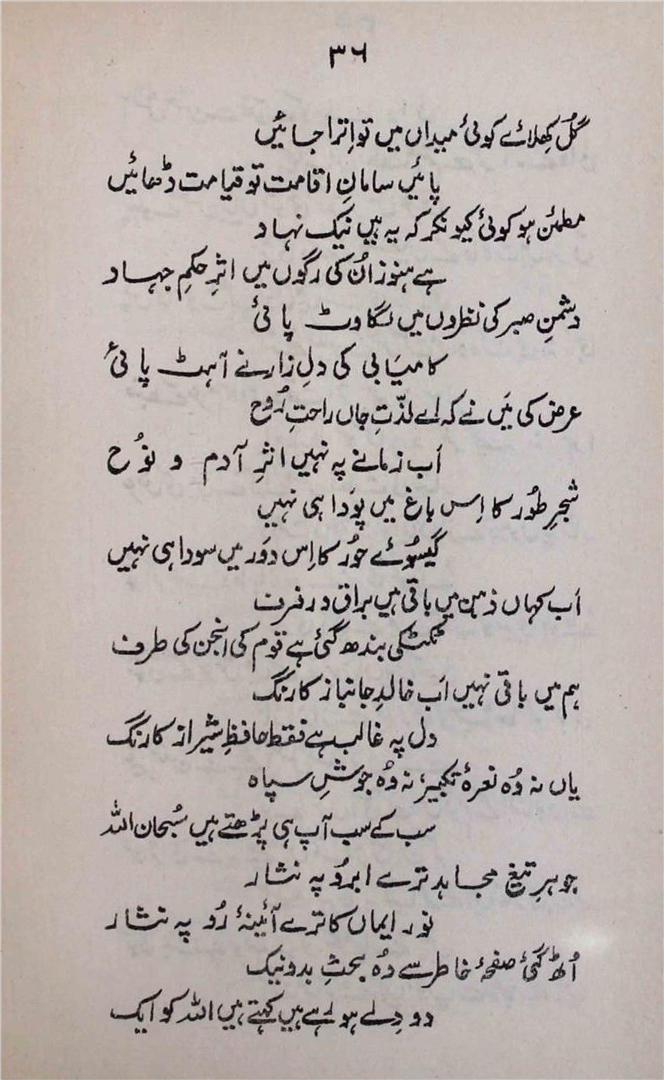 ۳۶
گل کھلائے کوئی میداں میں تو اِترا جائیں
پائیں سامانِ اقامت تو قیامت ڈھائیں
مطمئن ہو کوئی کیونکر کہ یہ ہیں نیک نہاد
ہے ہنوز اُن کی رگوں میں اثرِ حکمِ جہاد
دشمنِ صبر کی نظروں میں لگاوٹ پائی
کامیابی کی دلِ زار نے آہٹ پائی
عرض کی مَیں نے کہ اے لذّتِ جاں راحتِ رُوح
اَب زمانے پہ نہیں اثرِ آدم و نوُح
شجرِ طُور کا اِس باغ میں پَودا ہی نہیں
گیسُوئے حوُر کا اِس دَور میں سودا ہی نہیں
اَب کہاں ذہن میں باقی ہیں براق و رفرف
ٹکٹکی بندھ گئی ہے قوم کی انجن کی طرف
ہم میں باقی نہیں اَب خالدِ جانباز کا رنگ
دل پہ غالب ہے فقط حافظِ شیراز کا رنگ
یاں نہ وُہ نعرۂ تکبیر نہ وُہ جوشِ سپاہ
سب کے سب آپ ہی پڑھتے ہیں سُبحان اللہ
جوہرِ تیغِ مجاہد ترے ابرُو پہ نثار
نورِ ایماں کا ترے آئینۂ رُو پہ نثار
اُٹھ گئی صفحۂ خاطر سے وُہ بحثِ بد و نیک
دو دِلے ہو رہے ہیں کہتے ہیں اللہ کو ایک